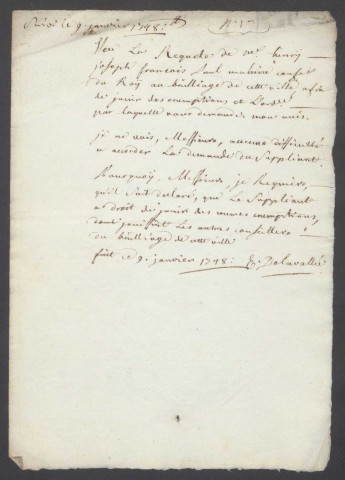 le 9. janvier 1748:
Veu La Requete de mr henry
joseph français Paul maître consr
du Roy au bailliage de cette ville afin
de jouir des exemptions et L'ordce
par laquelle vous demandés mon avis.
je ne vois, Messieurs, aucune difficulté
a accorder La demande du Suppliant
Pourquoy, Messieurs, je Requiers,
qu'il soit declaré, que Le Suppliant
a droit de jouir des mêmes exemptions,
dont jouissent Les autres conseillers
du bailliage de cette ville
fait ce 9. janvier 1748: Delavallée